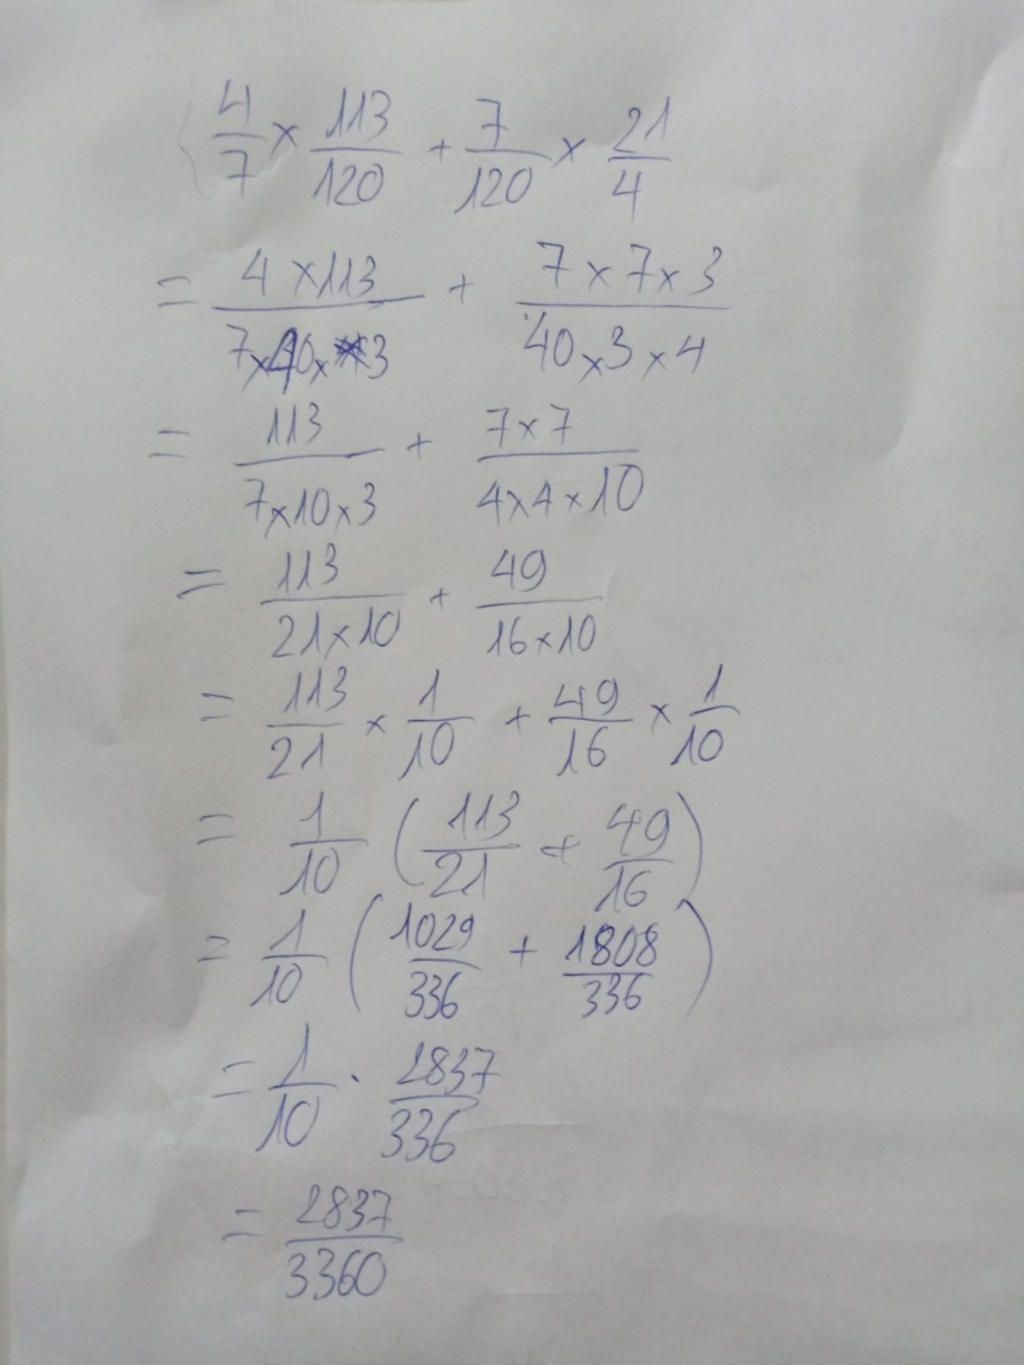 4/7 × 113/120 + 7/120 × 21/4
= 4 × 113 / 7 × 40 × 3 + 7 × 7 × 3 / 40 × 3 × 4
= 113 / 7 × 10 × 3 + 7 × 7 / 4 × 4 × 10
= 113 / 21 × 10 + 49 / 16 × 10
= 113/21 × 1/10 + 49/16 × 1/10
= 1/10 ( 113/21 + 49/16 )
= 1/10 ( 1029/336 + 1808/336 )
= 1/10 · 2837/336
= 2837/3360